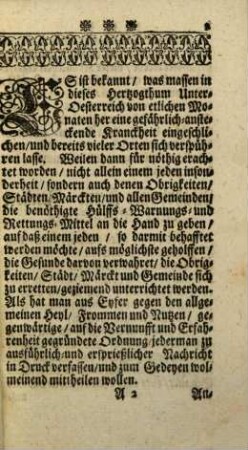 ES ist bekannt / was massen in
dieses Hertzogthum Unter-
Oesterreich von etlichen Mo-
naten her eine gefährlich-anste-
ckende Kranckheit eingeschli-
chen / und bereits vieler Orten sich verspüh-
ren lasse. Weilen dann für nöthig erach-
tet worden / nicht allein einem jeden inson-
derheit / sondern auch denen Obrigkeiten /
Städten / Märckten / und allen Gemeinden /
die benöthigte Hülffs- Warnungs- und
Rettungs-Mittel an die Hand zu geben /
auf daß einem jeden / so darmit behafftet
werden möchte / aufs möglichste geholffen /
die Gesunde darvon verwahret / die Obrig-
keiten / Städt / Märckt und Gemeinde sich
zu erretten / geziemend unterrichtet werden.
Als hat man aus Eyfer gegen den allge-
meinen Heyl / Frommen und Nutzen / ge-
genwärtige / auf die Vernunfft und Erfah-
renheit gegründete Ordnung / jederman zu
ausführlich- und ersprießlicher Nachricht
in Druck verfassen / und zum Gedeyen wol-
meinend mittheilen wollen.
A 2 An-